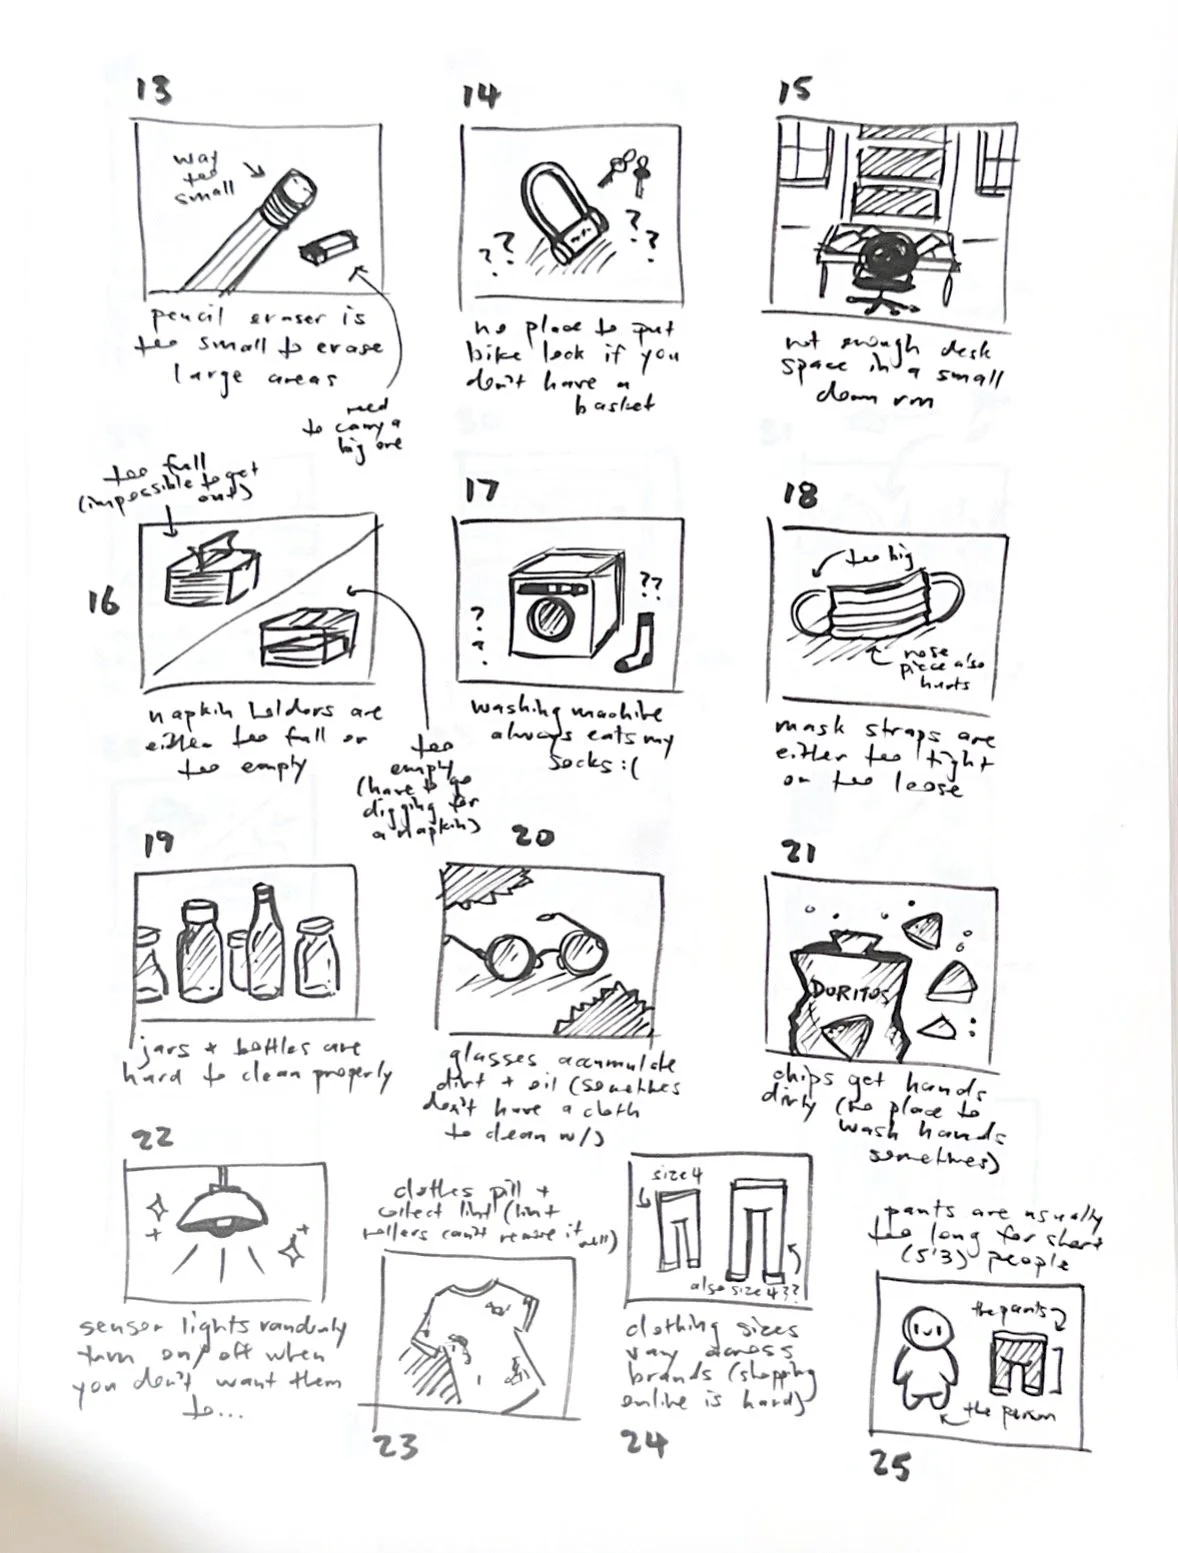 13
way
too
small
pencil eraser is
too small to erase
large areas
need
to carry a
big one
14
??
?
??
no place to put
bike lock if you
don't have a
basket
15
not enough desk
space in a small
dorm rm
too full
(impossible to get
out)
16
napkin holders are
either too full or
too empty
too
empty
(have to go
digging for
a napkin)
17
??
?
?
washing machine
always eats my
socks :(
18
too big
nose
piece also
hurts
mask straps are
either too tight
or too loose
19
jars + bottles are
hard to clean properly
20
glasses accumulate
dirt + oil (sometimes
don't have a cloth
to clean w/)
21
DORITOS
chips get hands
dirty (no place to
wash hands
sometimes)
22
sensor lights randomly
turn on/off when
you don't want them
to...
clothes pill +
collect lint (lint
rollers can't remove it
all)
23
size 4
also size 4??
clothing sizes
vary across
brands (shopping
online is hard)
24
pants are usually
too long for short
(5'3) people
the pants
the person
25